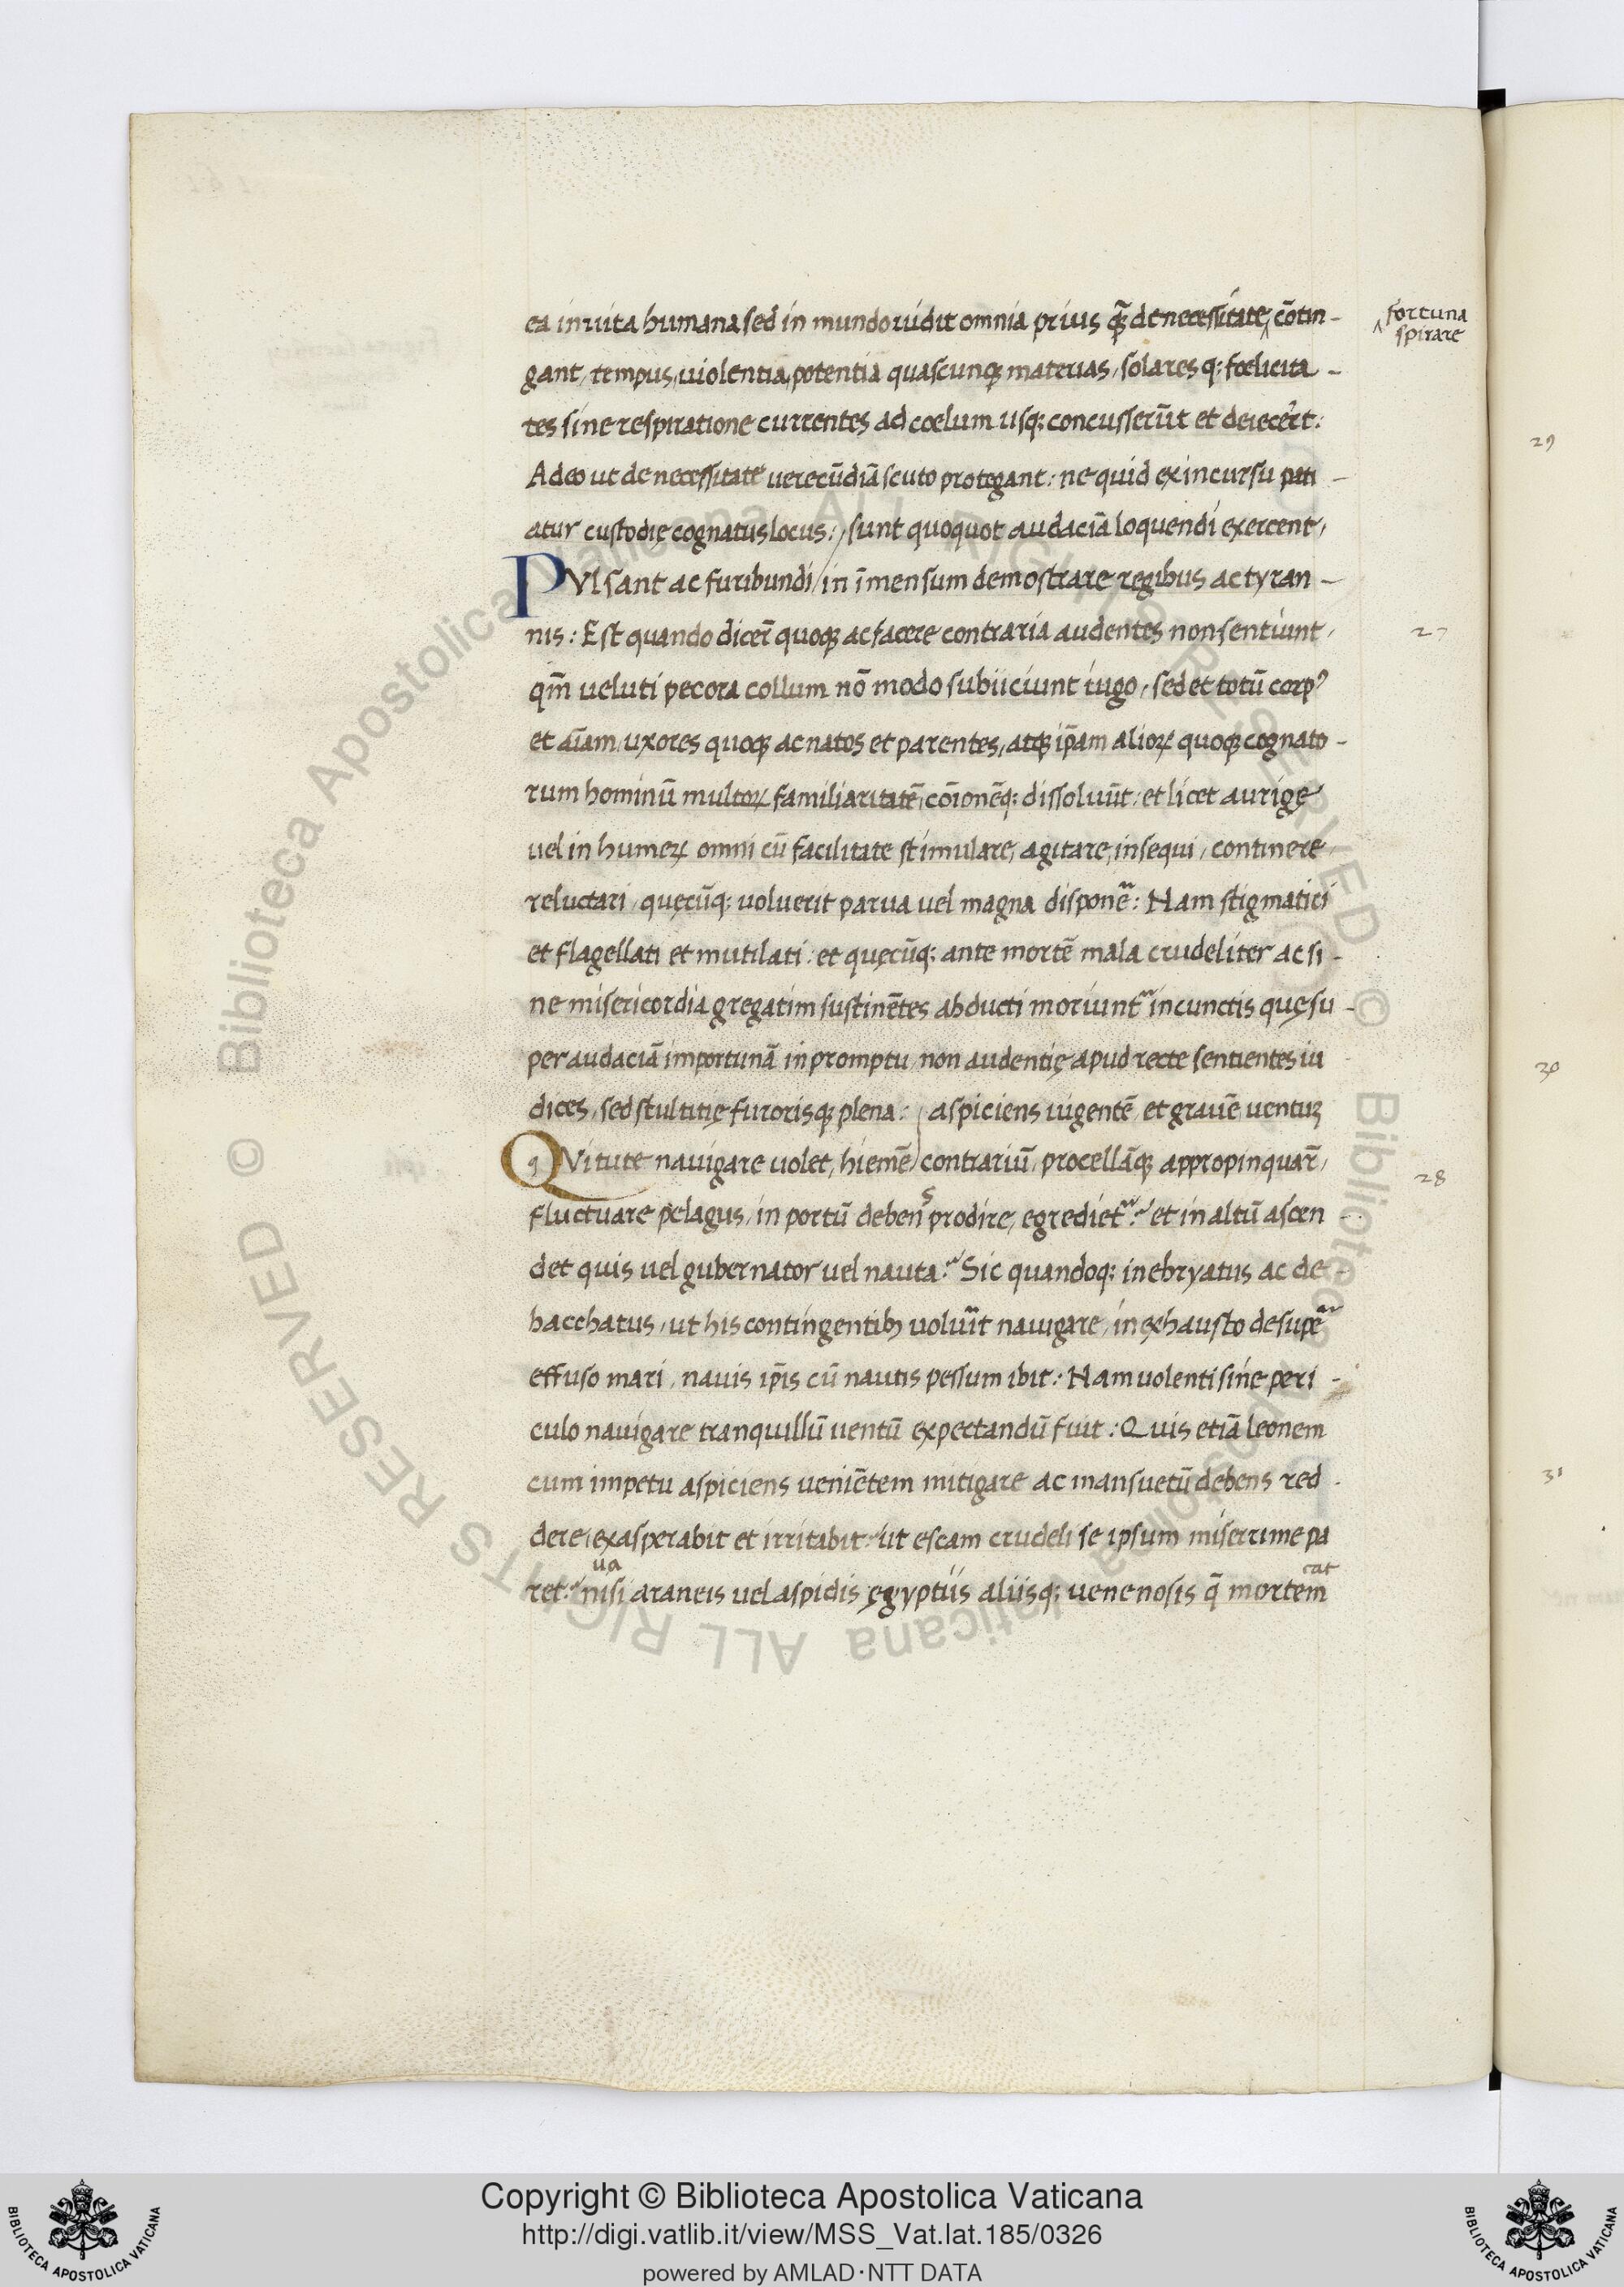 ea in uita humana sed in mundo uidit omnia prius q̄ꝫ de necessitate ‸ cōtin-
‸ fortuna
spirare
gant, tempus, uiolentia, potentia quascunqꝫ materias, solares qꝫ foelicita-
tes sine respiratione currentes ad coelum usqꝫ concusserūt et deiecer̄t:
Adeo ut de necessitate uerecūdiā scuto protegant: ne quid ex incursu pati-
atur custodię cognatus locus: / sunt quoquot audaciā loquendi exercent,
PVlsant ac furibundi / in īmensum demostrare regibus ac tyran-
nis: Est quando dicer̄ quoqꝫ ac facere contraria audentes non sentiunt,
qm̄ ueluti pecora collum nō modo subiiciunt iugo, sed et totū corpꝰ
et aīam, uxores quoqꝫ ac natos et parentes, atqꝫ ip̄am alioꝝ quoqꝫ cognato-
rum hominū multoꝝ familiaritatē, cōionēqꝫ dissoluūt: et licet aurigę
uel in humeꝝ omni cū facilitate stimulare, agitare, insequi, continere,
reluctari, quęcūqꝫ uoluerit parua uel magna disponeͬ: Nam stigmatici
et flagellati et mutilati: et quęcūqꝫ ante mortē mala crudeliter ac si-
ne misericordia gregatim sustinētes abducti moriuntͬ in cunctis quę su-
per audaciā importunā in promptu, non audentię apud recte sentientes iu-
dices, sed stultitię furorisqꝫ plena: / aspiciens uigentē et grauē uentuꝫ
QVi tute nauigare uolet, hiemē / contrariū, procellāqꝫ appropinquar̄,
fluctuare pelagus, in portū debens prodire, egredietͬ? et in altū ascen-
det quis uel gubernator uel nauta? Sic quandoqꝫ inebryatus ac de-
bacchatus, ut his contingentibꝫ uoluͬit nauigare, in exhausto desupeͬ
effuso mari, nauis ip̄is cū nautis pessum ibit: Nam uolenti sine peri-
culo nauigare tranquillū uentū expectandū fuit: Quis etiā leonem
cum impetu aspiciens ueniētem mitigare ac mansuetū debens red-
dere, exasperabit et irritabit: ut escam crudeli se ipsum miserrime pa
ua
cat
ret? nisi araneis uel aspidis ęgyptiis aliisqꝫ uenenosis q̄ mortem
27
28
29
30
31
© Biblioteca Apostolica Vaticana ALL RIGHTS RESERVED © Biblioteca Apostolica Vaticana ALL RIGHTS RESERVED
Copyright © Biblioteca Apostolica Vaticana
http://digi.vatlib.it/view/MSS_Vat.lat.185/0326
powered by AMLAD·NTT DATA
BIBLIOTECA APOSTOLICA VATICANA
BIBLIOTECA APOSTOLICA VATICANA